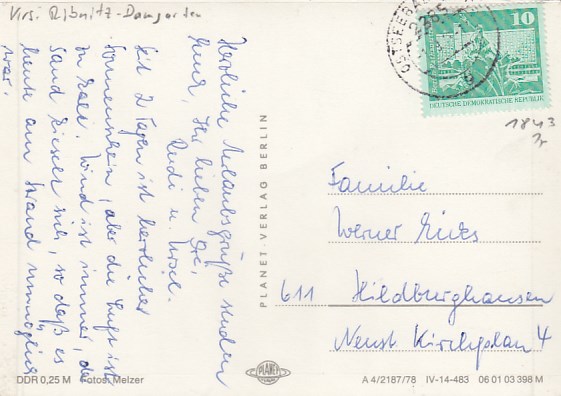 Krs. Ribnitz-Damgarten
Herzliche Urlaubsgrüße senden
Euch, Ihr lieben Dre,
Rudi u. Ursel.
Seit 2 Tagen ist herrlicher
Sonnenschein, aber die Luft ist
zu kalt. Wind ist immer, der
Sand rieselt sich, so daß es
heute am Strand unmöglich
war.
DDR 0,25 M Fotos: Melzer
PLANET VERLAG BERLIN
PLANET
OSTSEEBAD
2385
10
DEUTSCHE DEMOKRATISCHE REPUBLIK
1843
Familie
Werner
611 Hildburghausen
Neust. Kirchplan 4
A 4/2187/78 IV-14-483 06 01 03 398 M